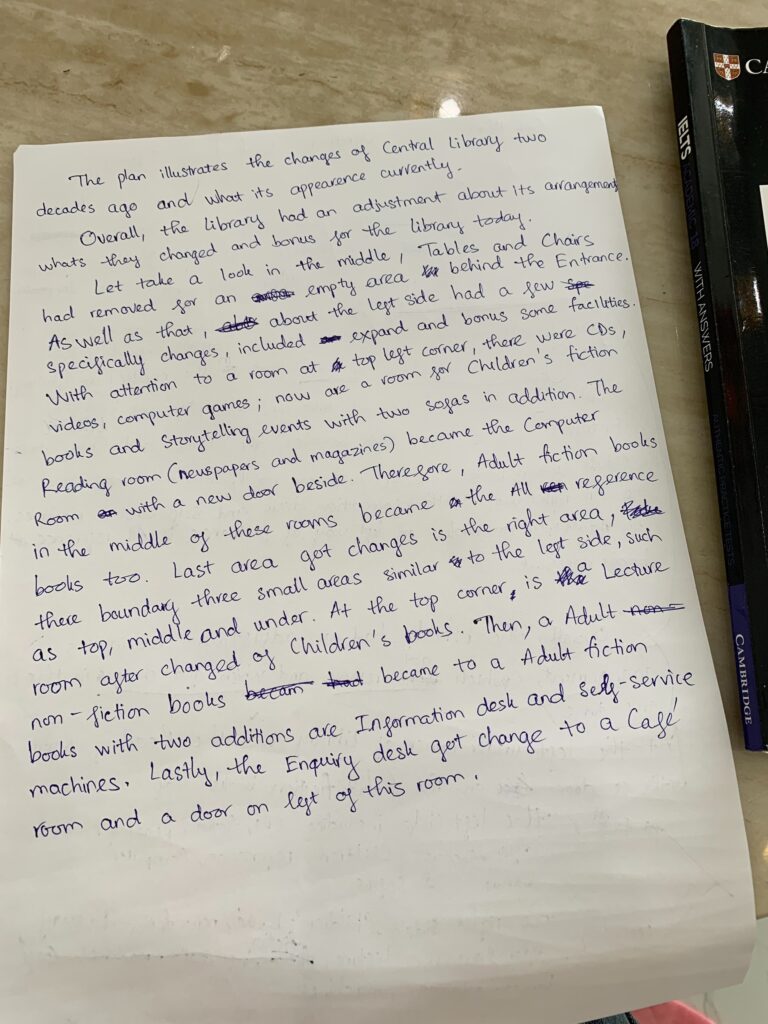 The plan illustrates the changes of Central Library two
decades ago and what its appearence currently.
Overall, the Library had an adjustment about its arrangement
whats they changed and bonus for the library today.
Let take a look in the middle, Tables and Chairs
had removed for an empty area behind the Entrance.
As well as that, about the left side had a few
specifically changes, included expand and bonus some facilities.
With attention to a room at top left corner, there were CDs,
videos, computer games; now are a room for Children's fiction
books and Storytelling events with two sofas in addition. The
Reading room (newspapers and magazines) became the Computer
Room with a new door beside. Therefore, Adult fiction books
in the middle of these rooms became the All reference
books too. Last area got changes is the right area,
there boundary three small areas similar to the left side, such
as top, middle and under. At the top corner, is a Lecture
room after changed of Children's books. Then, a Adult
non-fiction books became to a Adult fiction
books with two additions are Information desk and self-service
machines. Lastly, the Enquiry desk got change to a Café
room and a door on left of this room.
CA
IELTS
WITH ANSWERS
CAMBRIDGE